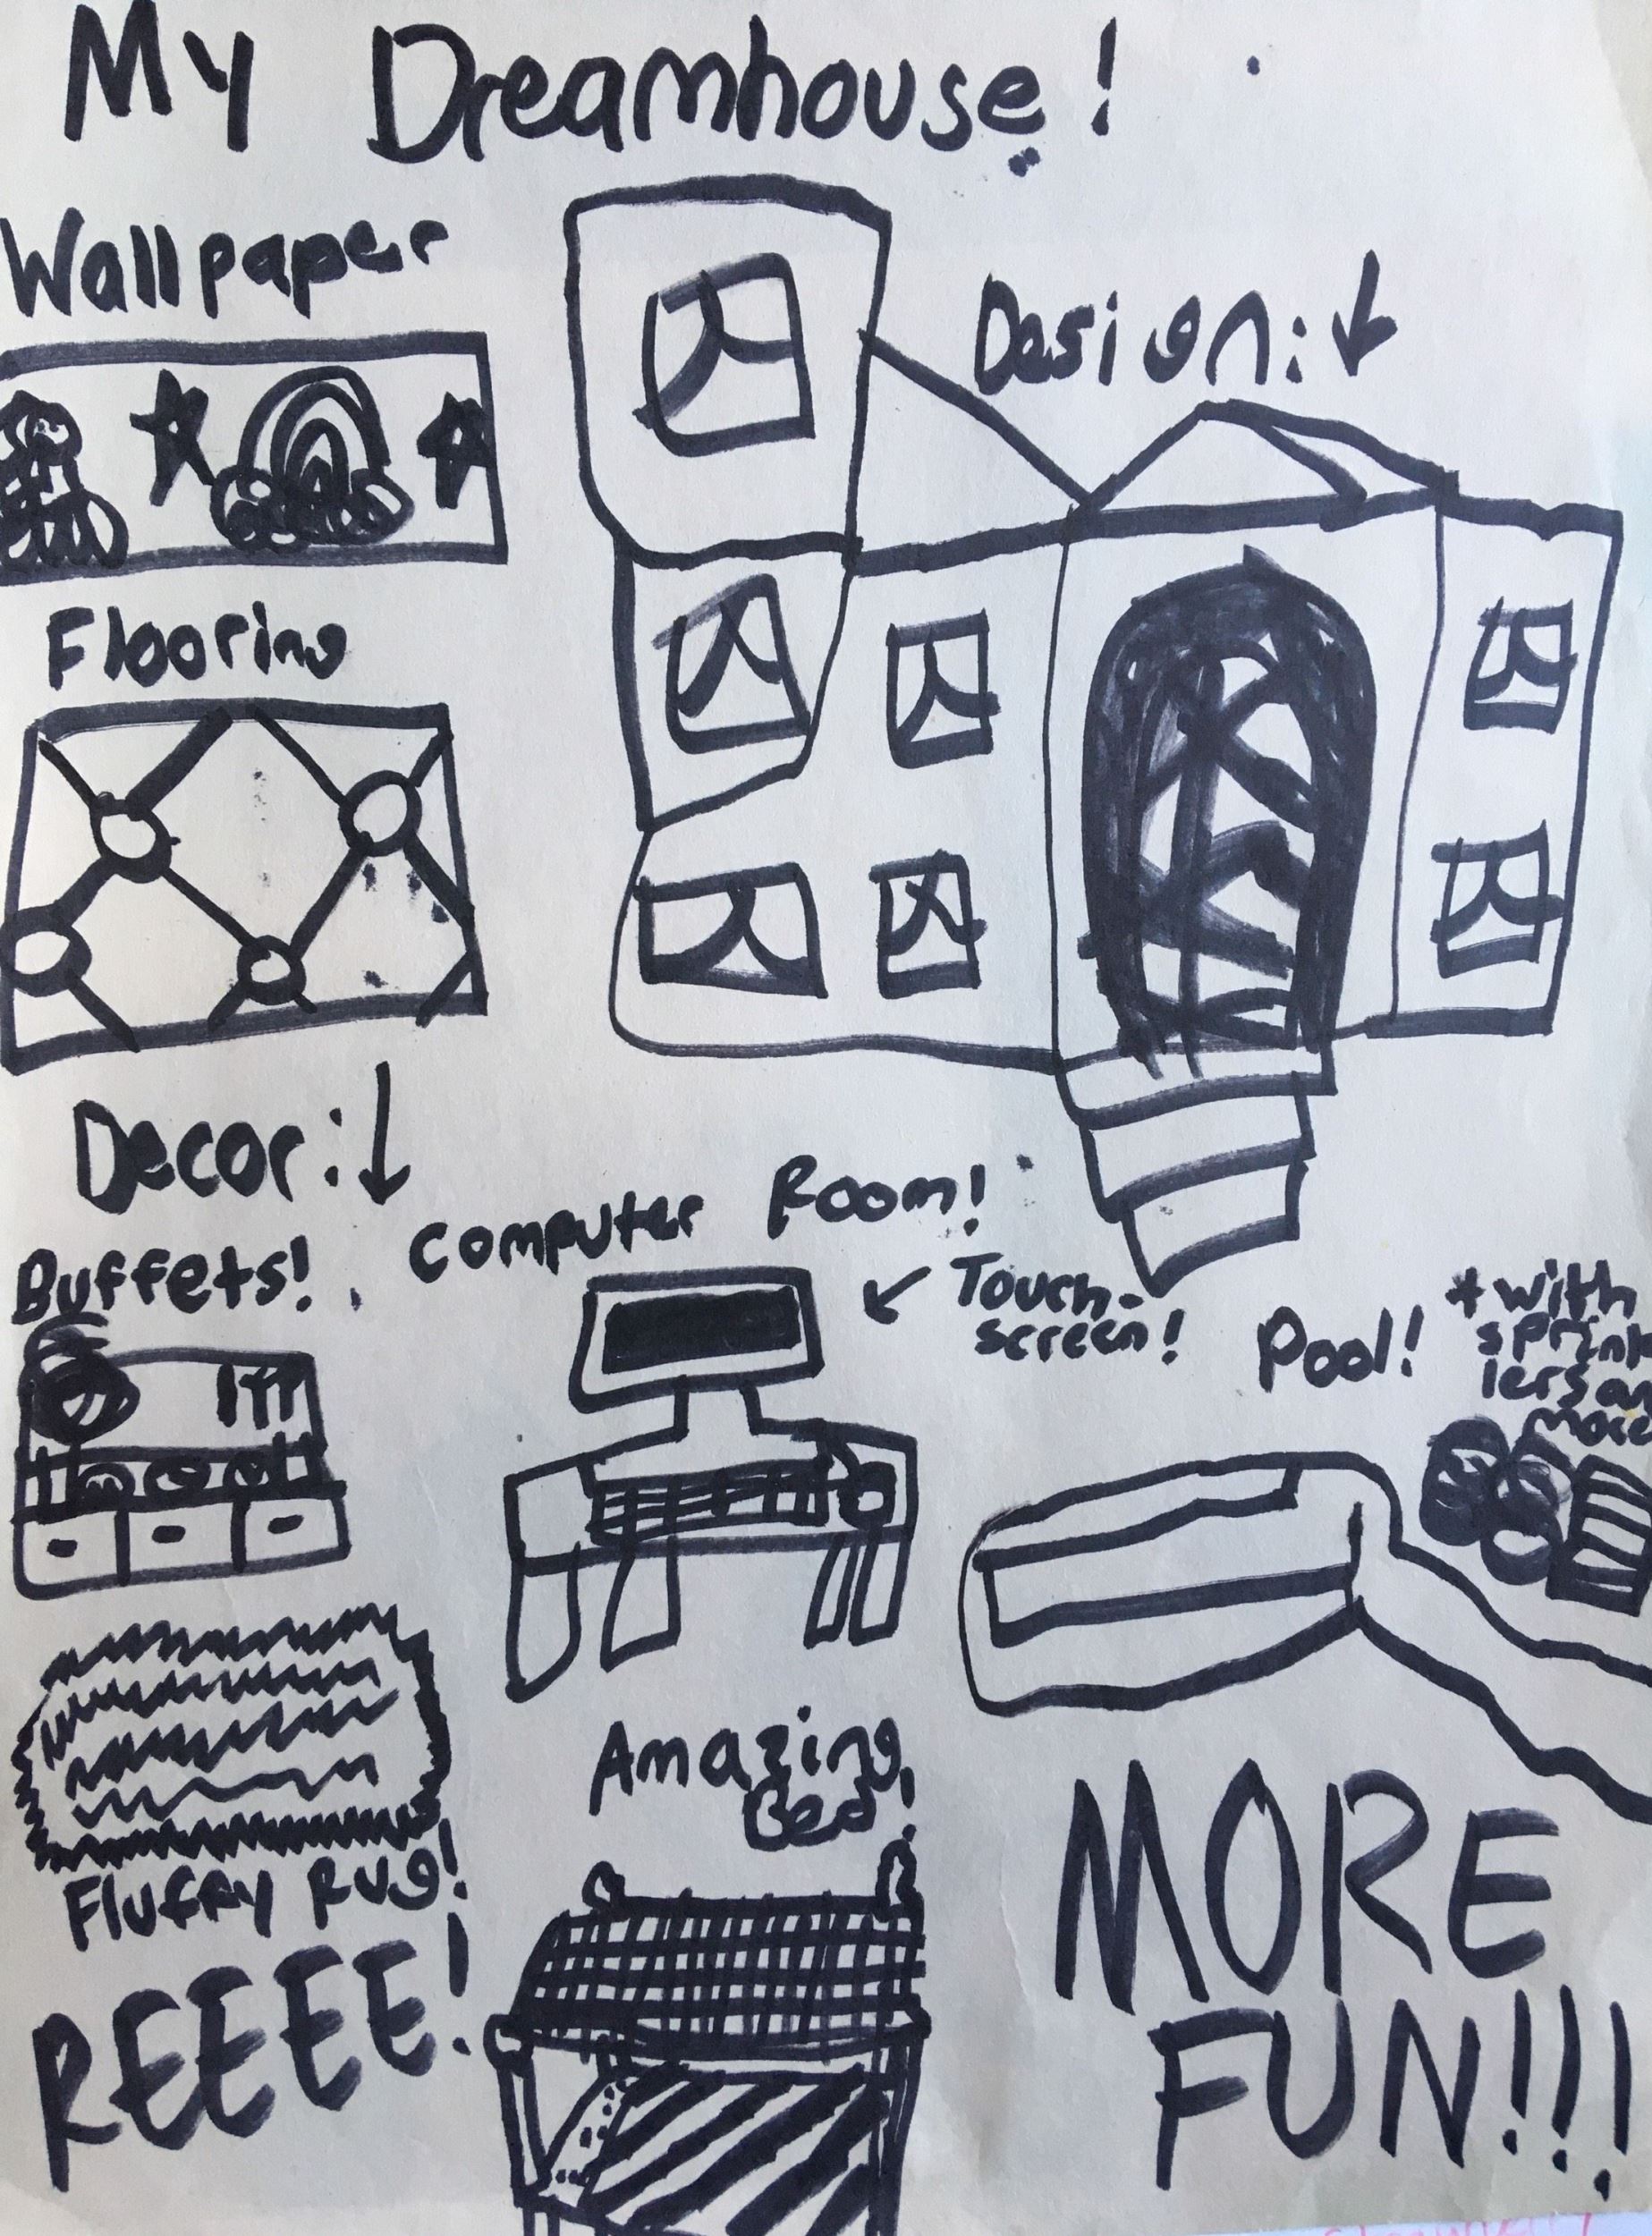 My Dreamhouse!
Wallpaper
Design:
Flooring
Decor:
Computer Room!
Buffets!
Touch-
screen!
Pool!
+ with
sprink
lers an
more
Fluffy Rug!
Amazing
Bed!
REEEE!
MORE
FUN!!!